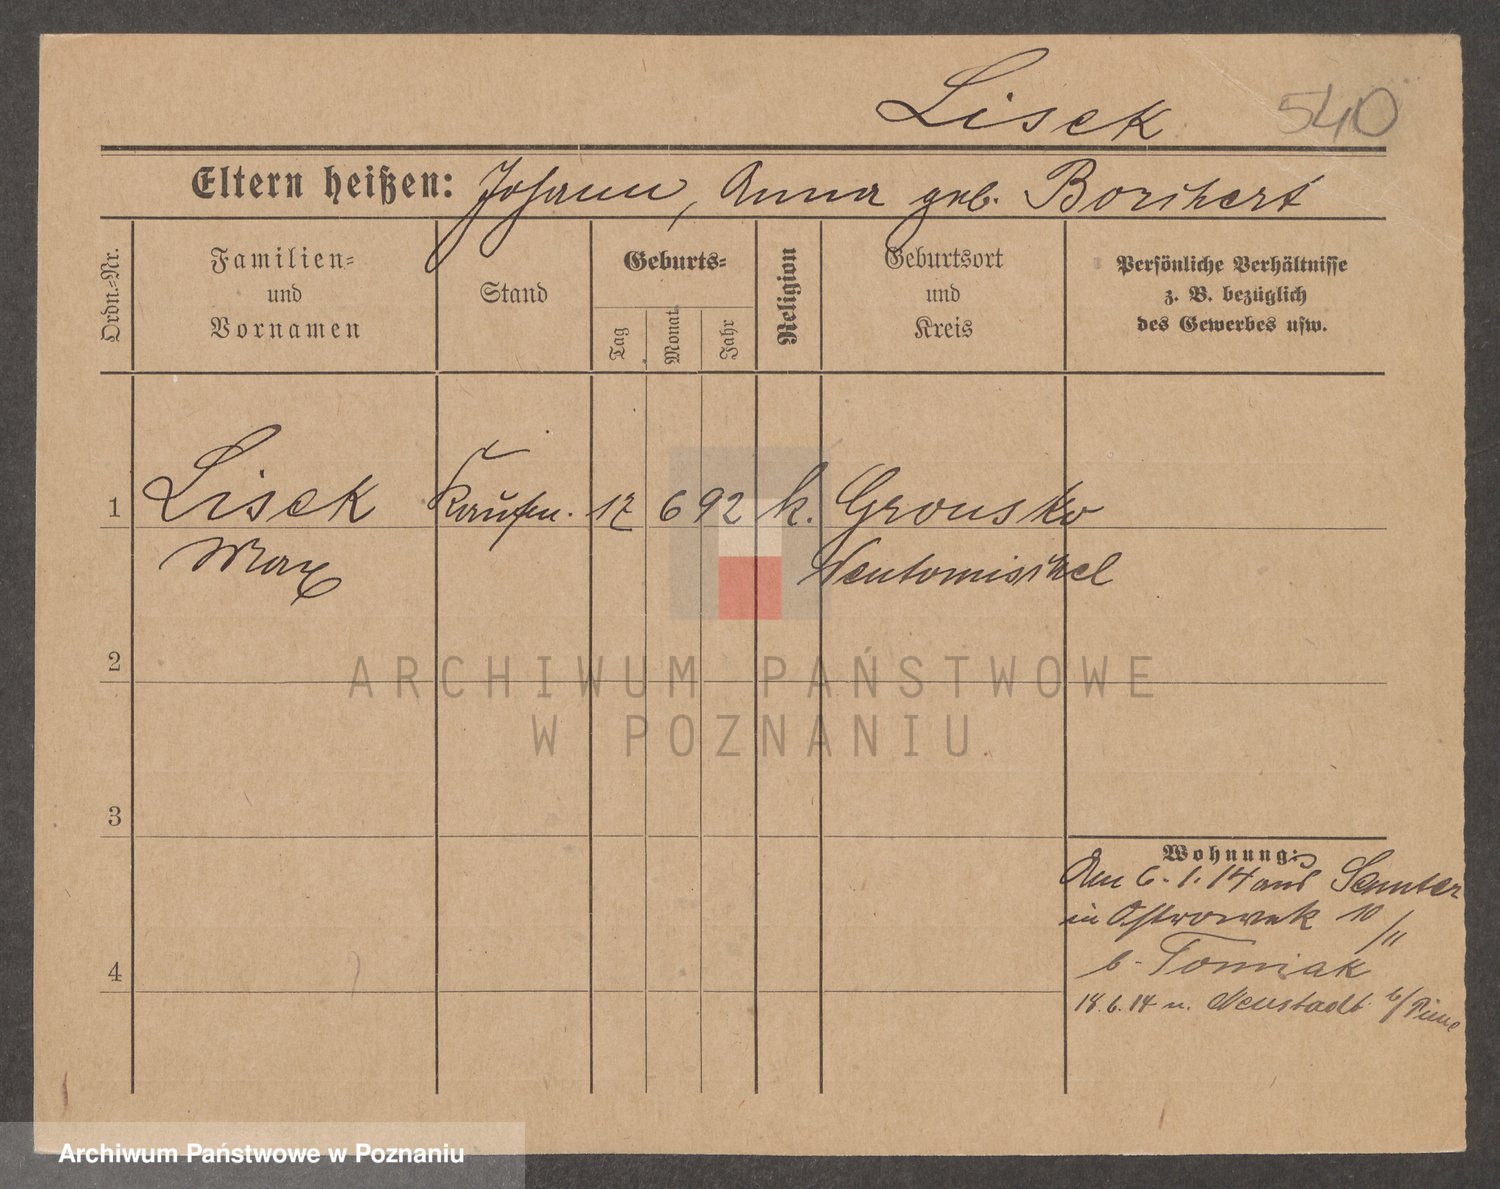 Lisek 540
Eltern heißen: Johann, Anna geb. Borchert
Ordn.=Nr.
Familien=
und
Vornamen
Stand
Geburts=
Tag
Monat
Jahr
Religion
Geburtsort
und
Kreis
Persönliche Verhältnisse
z. B. bezüglich
des Gewerbes usw.
1 Lisek Kaufm. 17 6 92 k. Gronsko
Max Neutomischel
2
ARCHIWUM PAŃSTWOWE
W POZNANIU
3
Wohnung:
Am 6. 1. 14 aus Samter
in Ostrowek 10/11
b. Tomiak
4
18. 6. 14 n. Neustadt b/Pinne
Archiwum Państwowe w Poznaniu